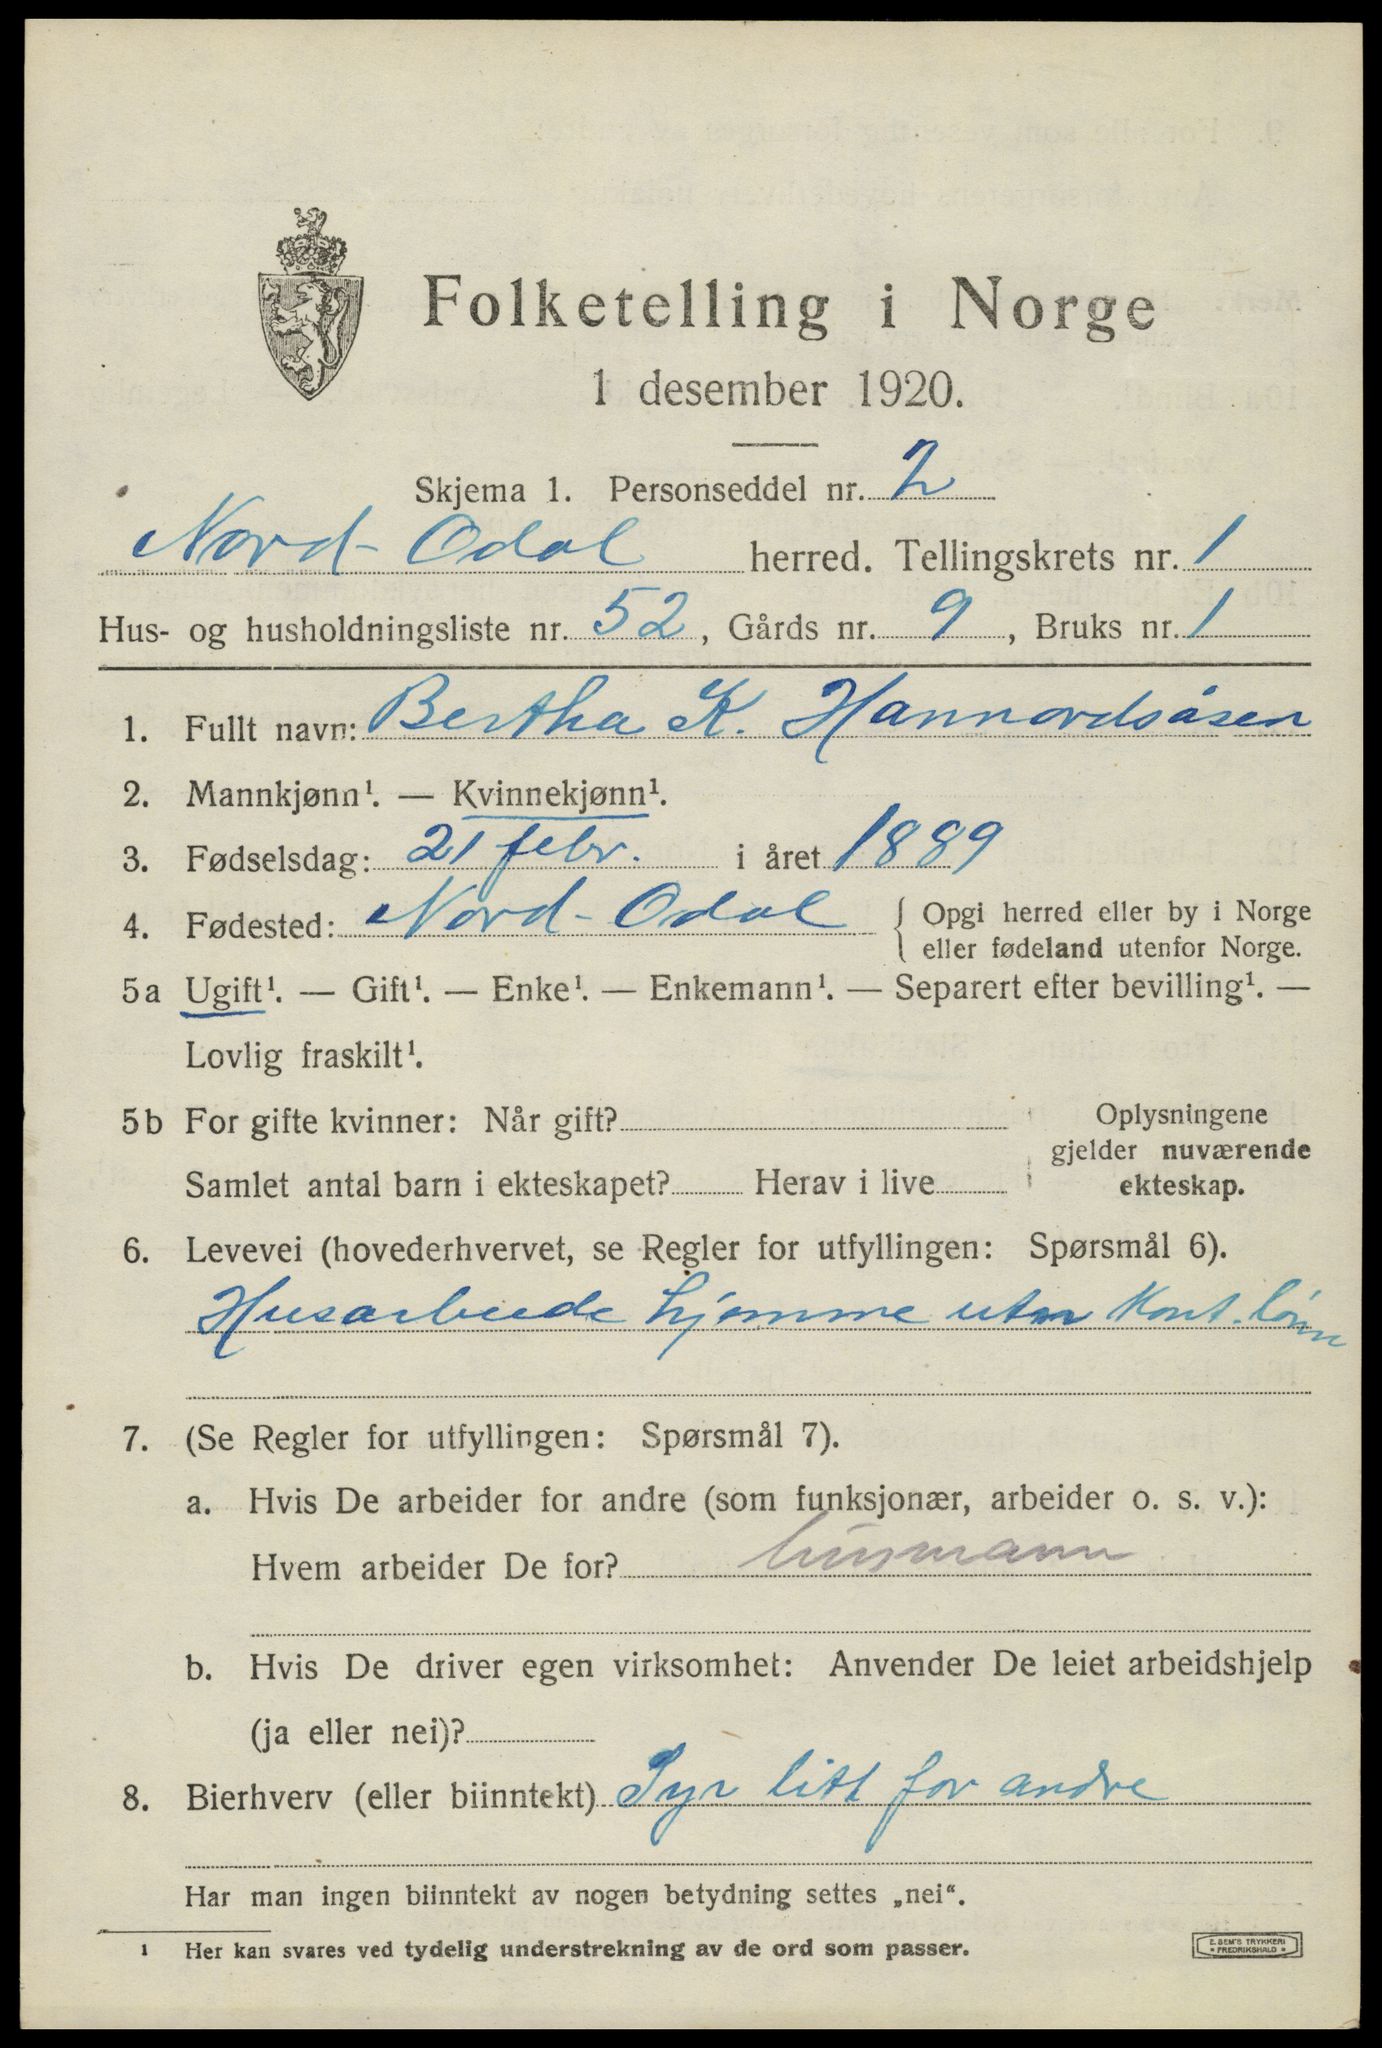 Folketelling i Norge
1 desember 1920.
Skjema 1. Personseddel nr. 2
Nord-Odal herred. Tellingskrets nr. 1
Hus- og husholdningsliste nr. 52, Gårds nr. 9, Bruks nr. 1
1. Fullt navn: Bertha K. Hannordsåsen
2. Mannkjønn¹. — Kvinnekjønn¹.
3. Fødselsdag: 21 febr. i året 1889
4. Fødested: Nord-Odal { Opgi herred eller by i Norge
eller fødeland utenfor Norge.
5a Ugift¹. — Gift¹. — Enke¹. — Enkemann¹. — Separert efter bevilling¹. —
Lovlig fraskilt¹.
5b For gifte kvinner: Når gift?
Samlet antal barn i ekteskapet? Herav i live
Oplysningene
gjelder nuværende
ekteskap.
6. Levevei (hovederhvervet, se Regler for utfyllingen: Spørsmål 6).
Husarbeide hjemme uten kont. lønn
7. (Se Regler for utfyllingen: Spørsmål 7).
a. Hvis De arbeider for andre (som funksjonær, arbeider o. s. v.):
Hvem arbeider De for? husmann
b. Hvis De driver egen virksomhet: Anvender De leiet arbeidshjelp
(ja eller nei)?
8. Bierhverv (eller biinntekt) Syr litt for andre
Har man ingen biinntekt av nogen betydning settes „nei“.
¹ Her kan svares ved tydelig understrekning av de ord som passer.
E. SEM'S TRYKKERI
* FREDRIKSHALD *